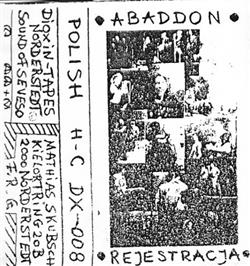 ABADDON
REJESTRACJA
POLISH H-C DX-008
DIOXIN-TAPES
NORDERSTEDT
SOUND OF SEVESO
MATHIAS SKUBSCH
KIELORTRING 20B
2000 NORDERSTEDT
F.R.G.